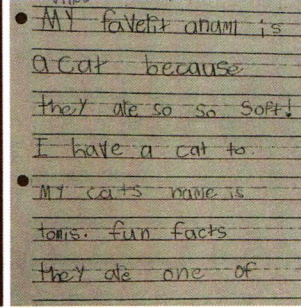 MY faverit anaml is
a cat because
they are so so soft!
I have a cat to
MY cats name is
tomis. fun facts
they are one of